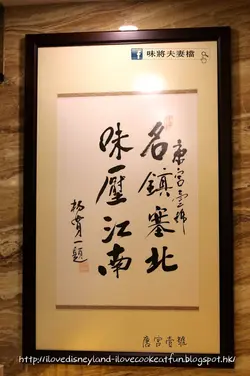 味將夫妻檔
唐宮壹號
名鎮塞北
味壓江南
楊貫一題
唐宮壹號
http://ilovedisneyland-ilovecookeatfun.blogspot.hk/